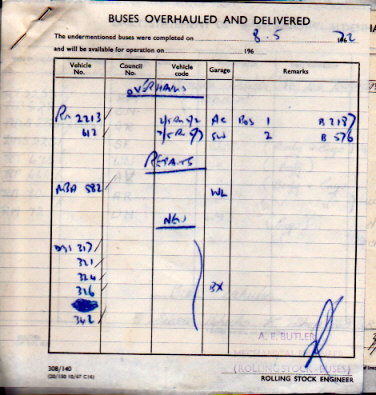 BUSES OVERHAULED AND DELIVERED
The undermentioned buses were completed on 8.5 1962 72
and will be available for operation on 196
Vehicle No. Council No. Vehicle code Garage Remarks
OVERHAULS
2213 AC Bos 1 B 2187
612 SW 2 B 576
REPAIRS
582 WL
NEW
317
321
324
326 BX
342
A. E. BUTLER
(ROLLING STOCK-BUSES)
ROLLING STOCK ENGINEER
308/140